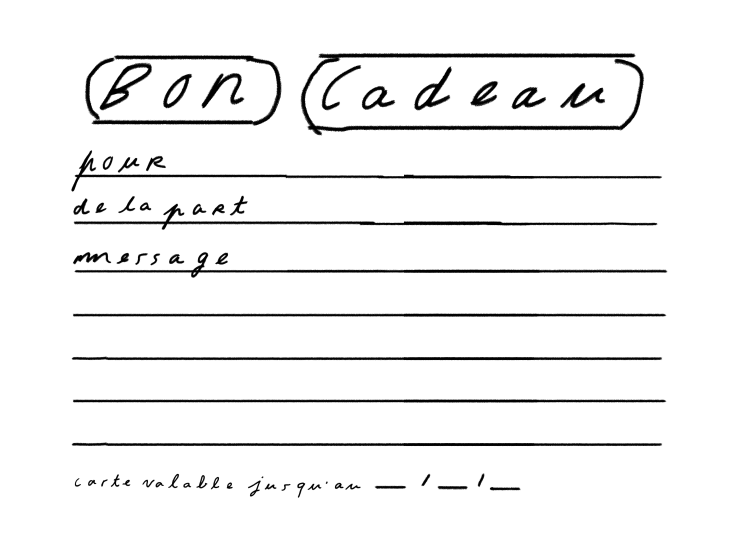 Bon Cadeau
pour
de la part
message
carte valable jusqu'au __ / __ / __